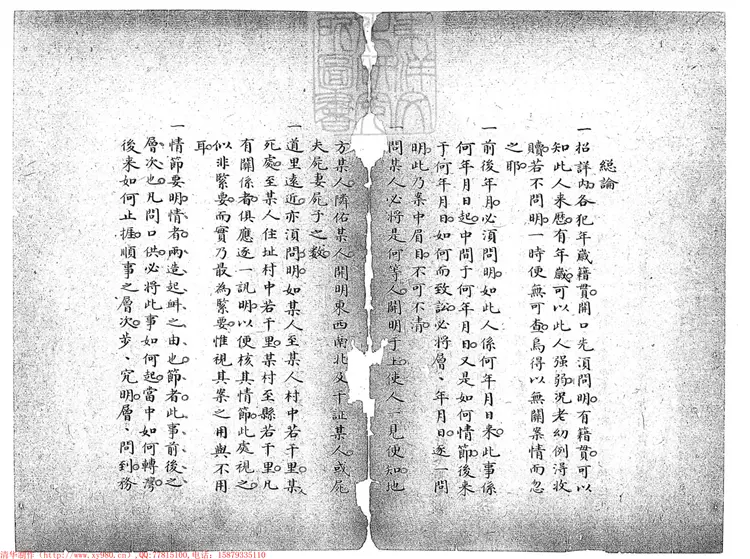 東洋文
化研究
所圖書
緫論
一招詳內各犯年歲籍貫開口先須問明有籍貫可以
知此人來歷有年歲可以此人强弱況老幼例得收
贖若不問明一時便無可查烏得以無關案情而忽
之耶
一前後年月必須問明如此人係何年月日來此事係
何年月日起中間于何年月日又是如何情節後來
于何年月日如何而致訟必將層、年月日逐一問
明此乃案中眉目不可不清
一問某人必將是何等人開明于上使人一見便知地
方某人隣佑某人開明東西南北及干証某人或屍
夫屍妻屍子之數
一道里遠近亦須問明如某人至某人村中若干里某
死處至某人住址村中若干里某村至縣若干里凡
有關係者俱應逐一訊明以便核其情節此處視之
似非緊要而實乃最為緊要惟視其案之用與不用
耳
一情節要明情者兩造起衅之由也節者此事前後之
層次也凡問口供必將此事如何起當中如何轉灣
後来如何止捱順事之層次步、究明層、問到務
清华制作（http://www.xy980.cn）,QQ:77815100,电话：15879335110